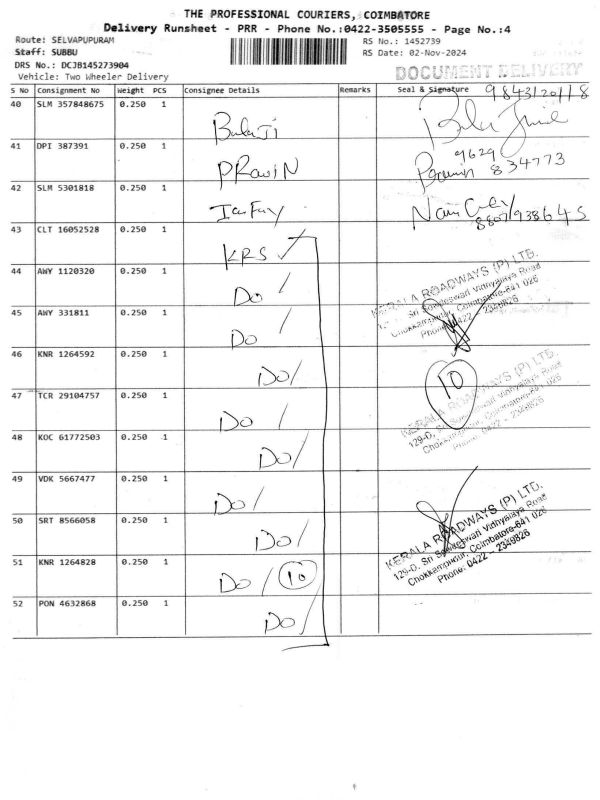 THE PROFESSIONAL COURIERS, COIMBATORE
Delivery Runsheet - PRR - Phone No.:0422-3505555 - Page No.:4
Route: SELVAPUPURAM
RS No.: 1452739
Staff: SUBBU
RS Date: 02-Nov-2024
DRS No.: DCJB145273904
DOCUMENT DELIVERY
Vehicle: Two Wheeler Delivery
S No Consignment No Weight PCS Consignee Details Remarks Seal & Signature 9843120118
40 SLM 357848675 0.250 1 Balaji
41 DPI 387391 0.250 1 PRaviN 9629 834773
42 SLM 5301818 0.250 1
43 CLT 16052528 0.250 1 KRS ✓
44 AWY 1120320 0.250 1 Do /
KERALA ROADWAYS (P) LTD.
Sri Sondeswari Vidhyalaya Road
Chokkampudur, Coimbatore-641 026
Phone: 0422 - 2349826
45 AWY 331811 0.250 1 Do /
46 KNR 1264592 0.250 1 Do /
47 TCR 29104757 0.250 1 Do / 10
KERALA ROADWAYS (P) LTD.
129-D, Sri Sondeswari Vidhyalaya Road
Chokkampudur, Coimbatore-641 026
Phone: 0422 - 2349826
48 KOC 61772503 0.250 1 Do /
49 VDK 5667477 0.250 1 Do /
50 SRT 8566058 0.250 1 Do /
KERALA ROADWAYS (P) LTD.
129-D, Sri Sondeswari Vidhyalaya Road
Chokkampudur, Coimbatore-641 026
Phone: 0422 - 2349826
51 KNR 1264828 0.250 1 Do / 10
52 PON 4632868 0.250 1 Do /